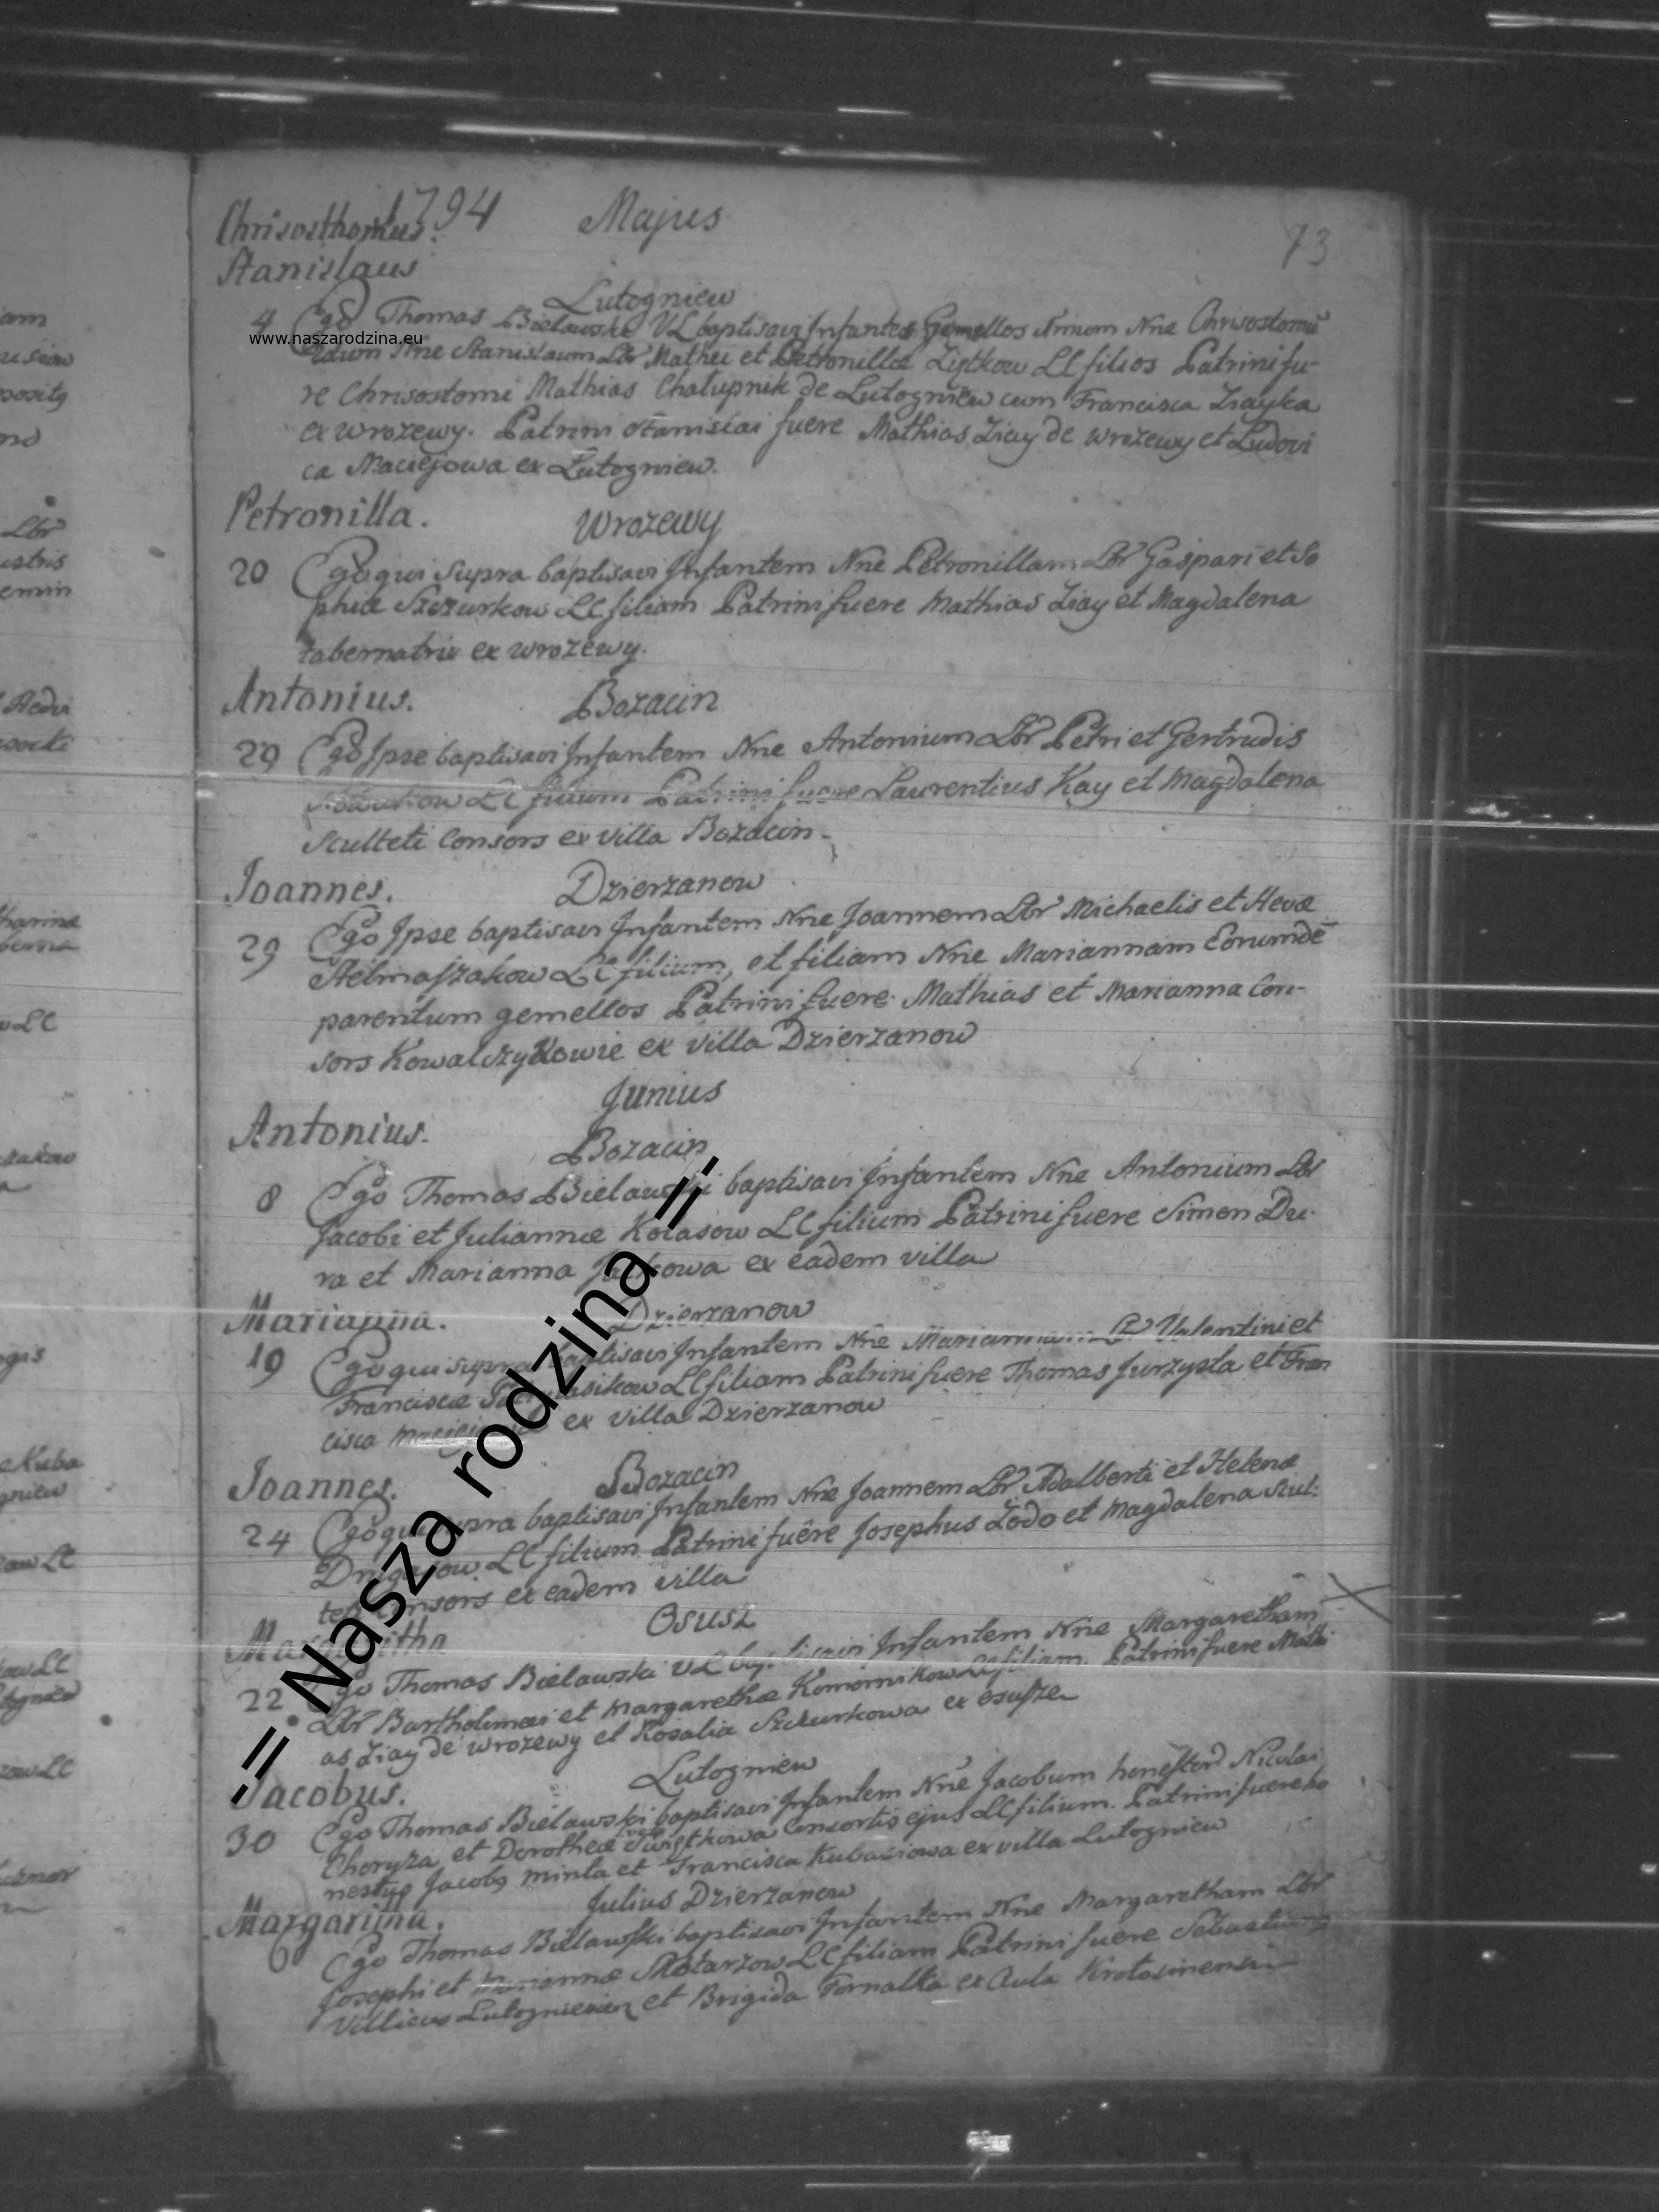 1794 Majus 73
Chrisosthomus.
Stanislaus
Lutogniew
4 Ego Thomas Bielawski VL baptisavi Infantes Gemellos Nne Chrisostomū
www.naszarodzina.eu
Nne Stanislaum Lbr Mathei et Petronillæ Ziętkow LC filios Patrini fu-
re Chrisostomi Mathias Chałupnik de Lutogniew cum Francisca Ziayka
ex wrozewy. Patrini Stanislai fuere Mathias Ziay de wrozewy et Ludovi
ca Maciejowa ex Lutogniew.
Petronilla. Wrozewy
20 Ego qui supra baptisavi Infantem Nne Petronillam Lbr Gaspari et So
phiæ Szczurkow LC filiam Patrini fuere Mathias Ziay et Magdalena
tabernatrix ex wrozewy.
Antonius. Bozacin
29 Ego Ipse baptisavi Infantem Nne Antonium Lbr Petri et Gertrudis
LC filium Patrini fuere Laurentius Kay et Magdalena
Sculteti Consors ex villa Bozacin
Joannes. Dzierzanow
29 Ego Ipse baptisavi Infantem Nne Joannem Lbr Michaelis et Hevæ
Stelmaszakow LC filium, et filiam Nne Mariannam Eorumdē
parentum gemellos Patrini fuere Mathias et Marianna Con-
sors Kowalczykowie ex villa Dzierzanow
Junius
Antonius. Bozacin
8 Ego Thomas Bielawski baptisavi Infantem Nne Antonium Lbr
Jacobi et Juliannæ Kolasow LC filium Patrini fuere Simon Du-
ra et Marianna ex eadem villa
Marianna. Dzierzanow
19 Ego qui supra baptisavi Infantem Nne Mariannam Lbr Valentini et
Franciscæ LC filiam Patrini fuere Thomas Jurzysta et Fran
cisca ex villa Dzierzanow
Joannes. Bozacin
24 Ego qui supra baptisavi Infantem Nne Joannem Lbr Adalberti et Helenæ
LC filium Patrini fuêre Josephus Zodo et Magdalena Scul-
teti Consors ex eadem villa
Osusz
22 Ego Thomas Bielawski VL baptisavi Infantem Nne Margaretham
Lbr Bartholomæi et Margarethæ Komornikow LC filiam. Patrini fuere Mathi
as Ziay de wrozewy et Rosalia Szczurkowa ex osusze
Jacobus. Lutogniew
30 Ego Thomas Bielawski baptisavi Infantem Nne Jacobum honestor Nicolai
Choryza et Dorotheæ Swiętkowa Consortis ejus LC filium. Patrini fuere ho
nestus Jacobus minta et Francisca Kubasiowa ex villa Lutogniew
Julius Dzierzanow
Ego Thomas Bielawski baptisavi Infantem Nne Margaretham Lbr
Josephi et Mariannæ LC filiam Patrini fuere Sebastianus
Villicus et Brigida Fornalka ex Aula Krotosinensi
-= Nasza rodzina =-